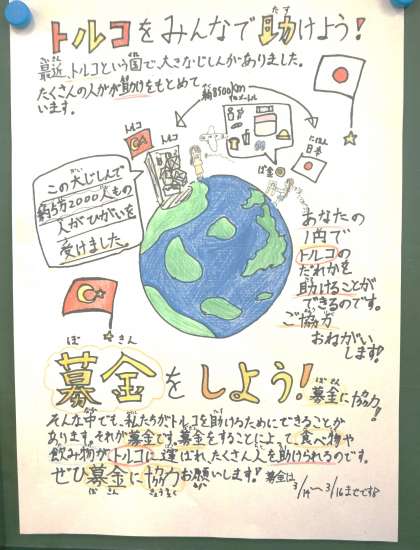 トルコをみんなで助けよう!
最近、トルコという国で、大きなじしんがありました。
たくさんの人がが助けをもとめて
います。
約8500km
キロメートル
トルコ
にほん
日本
ぼ金
この大じしんで
約5万2000人もの
人がひがいを
受けました。
あなたの
1円で
トルコの
だれかを
助けることが
できるのです。
ご協力
おねがい
します!
募金をしよう!
募金に協力!
そんな中でも、私たちがトルコを助けるためにできることが
あります。それが募金です。募金をすることによって、食べ物や
飲み物がトルコに運ばれ、たくさん人を助けられるのです。
ぜひ募金に協力お願いします!
募金は
3/14〜3/16までです